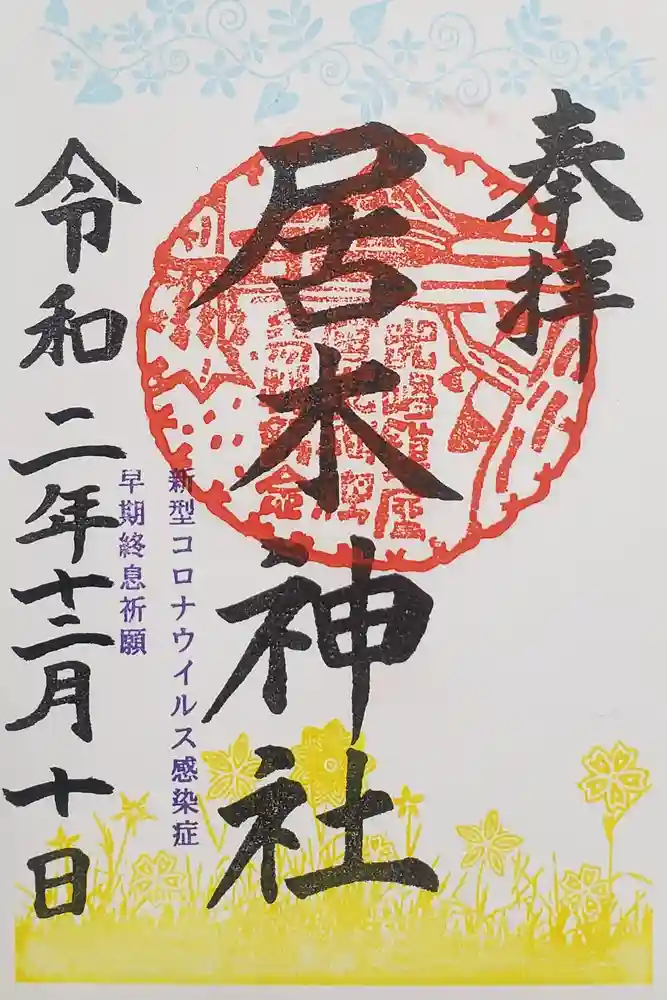 奉拝
居木神社
新型コロナウイルス感染症
早期終息祈願
令和二年十二月十日